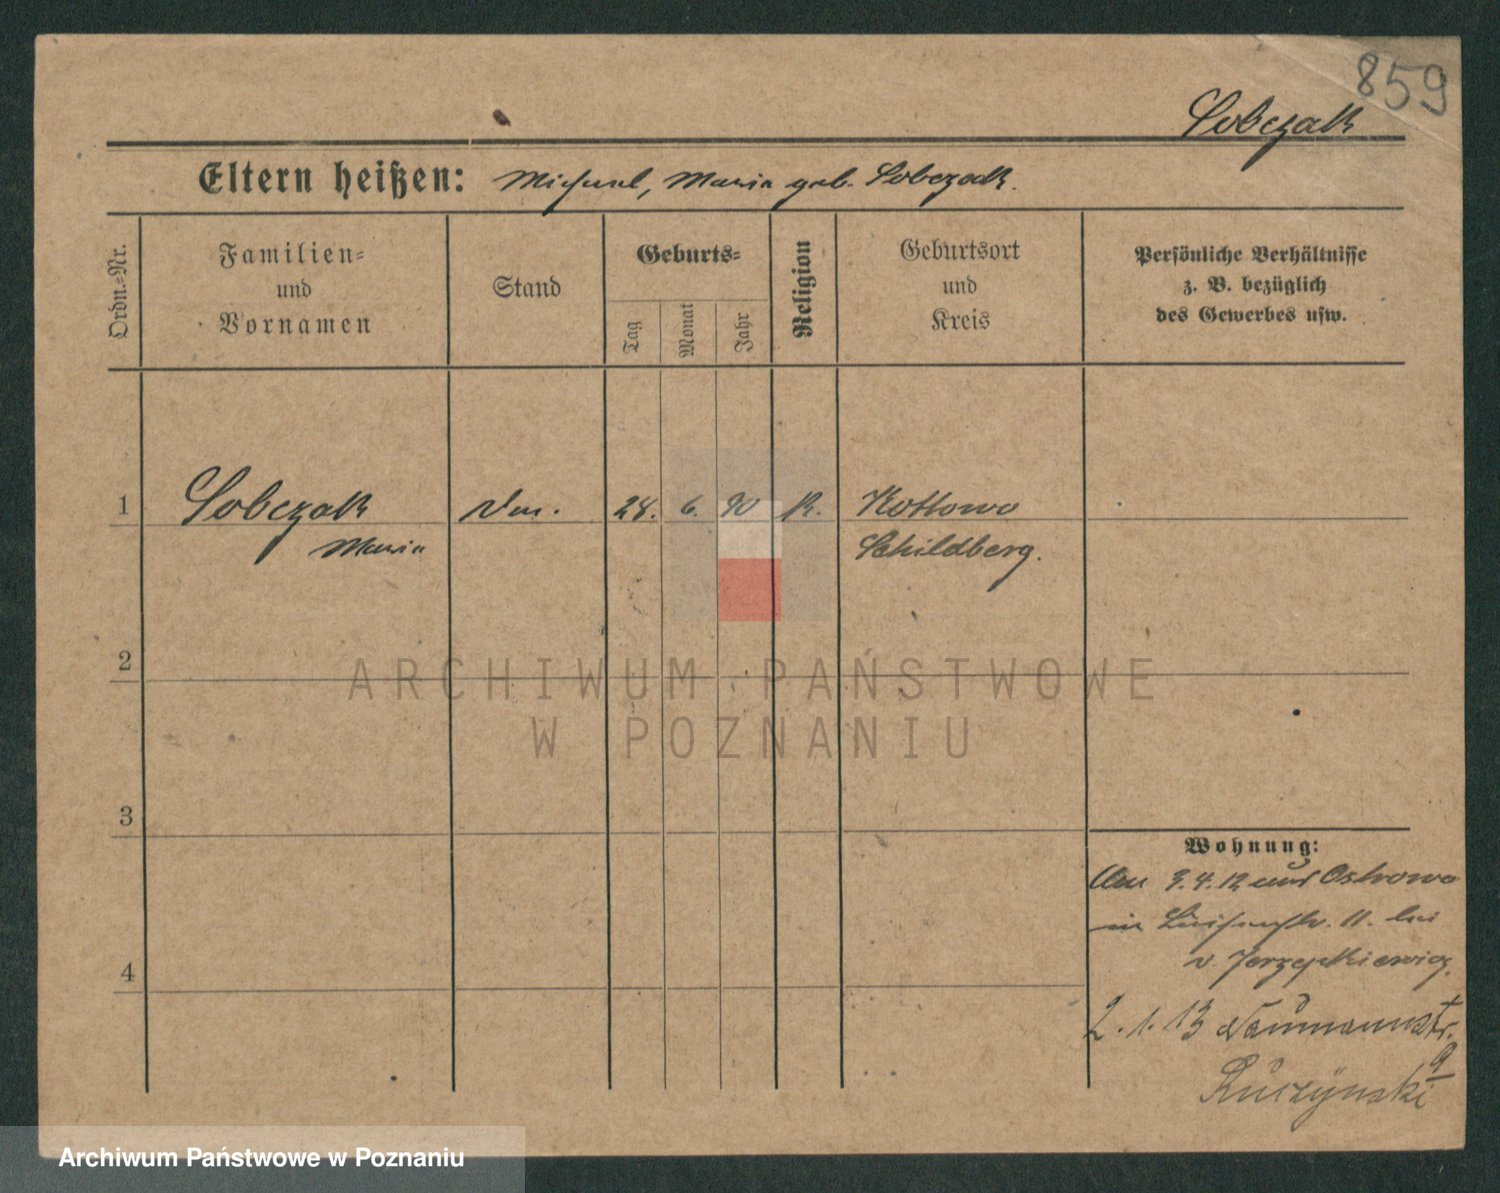 859
Sobczak
Eltern heißen: Michael, Maria geb. Sobczak.
Ordn.=Nr.
Familien=
und
Vornamen
Stand
Geburts=
Tag
Monat
Jahr
Religion
Geburtsort
und
Kreis
Persönliche Verhältnisse
z. B. bezüglich
des Gewerbes usw.
1 Sobczak 28. 6. 90 K. Kottowo
Maria Schildberg.
2
3
4
ARCHIWUM PAŃSTWOWE
W POZNANIU
Wohnung:
3.4.12 aus Ostrowo
in Luisenstr. 11. bei
v. Jerzykiewicz,
2.1.13 Naumannstr.
9
Ruczynski
Archiwum Państwowe w Poznaniu